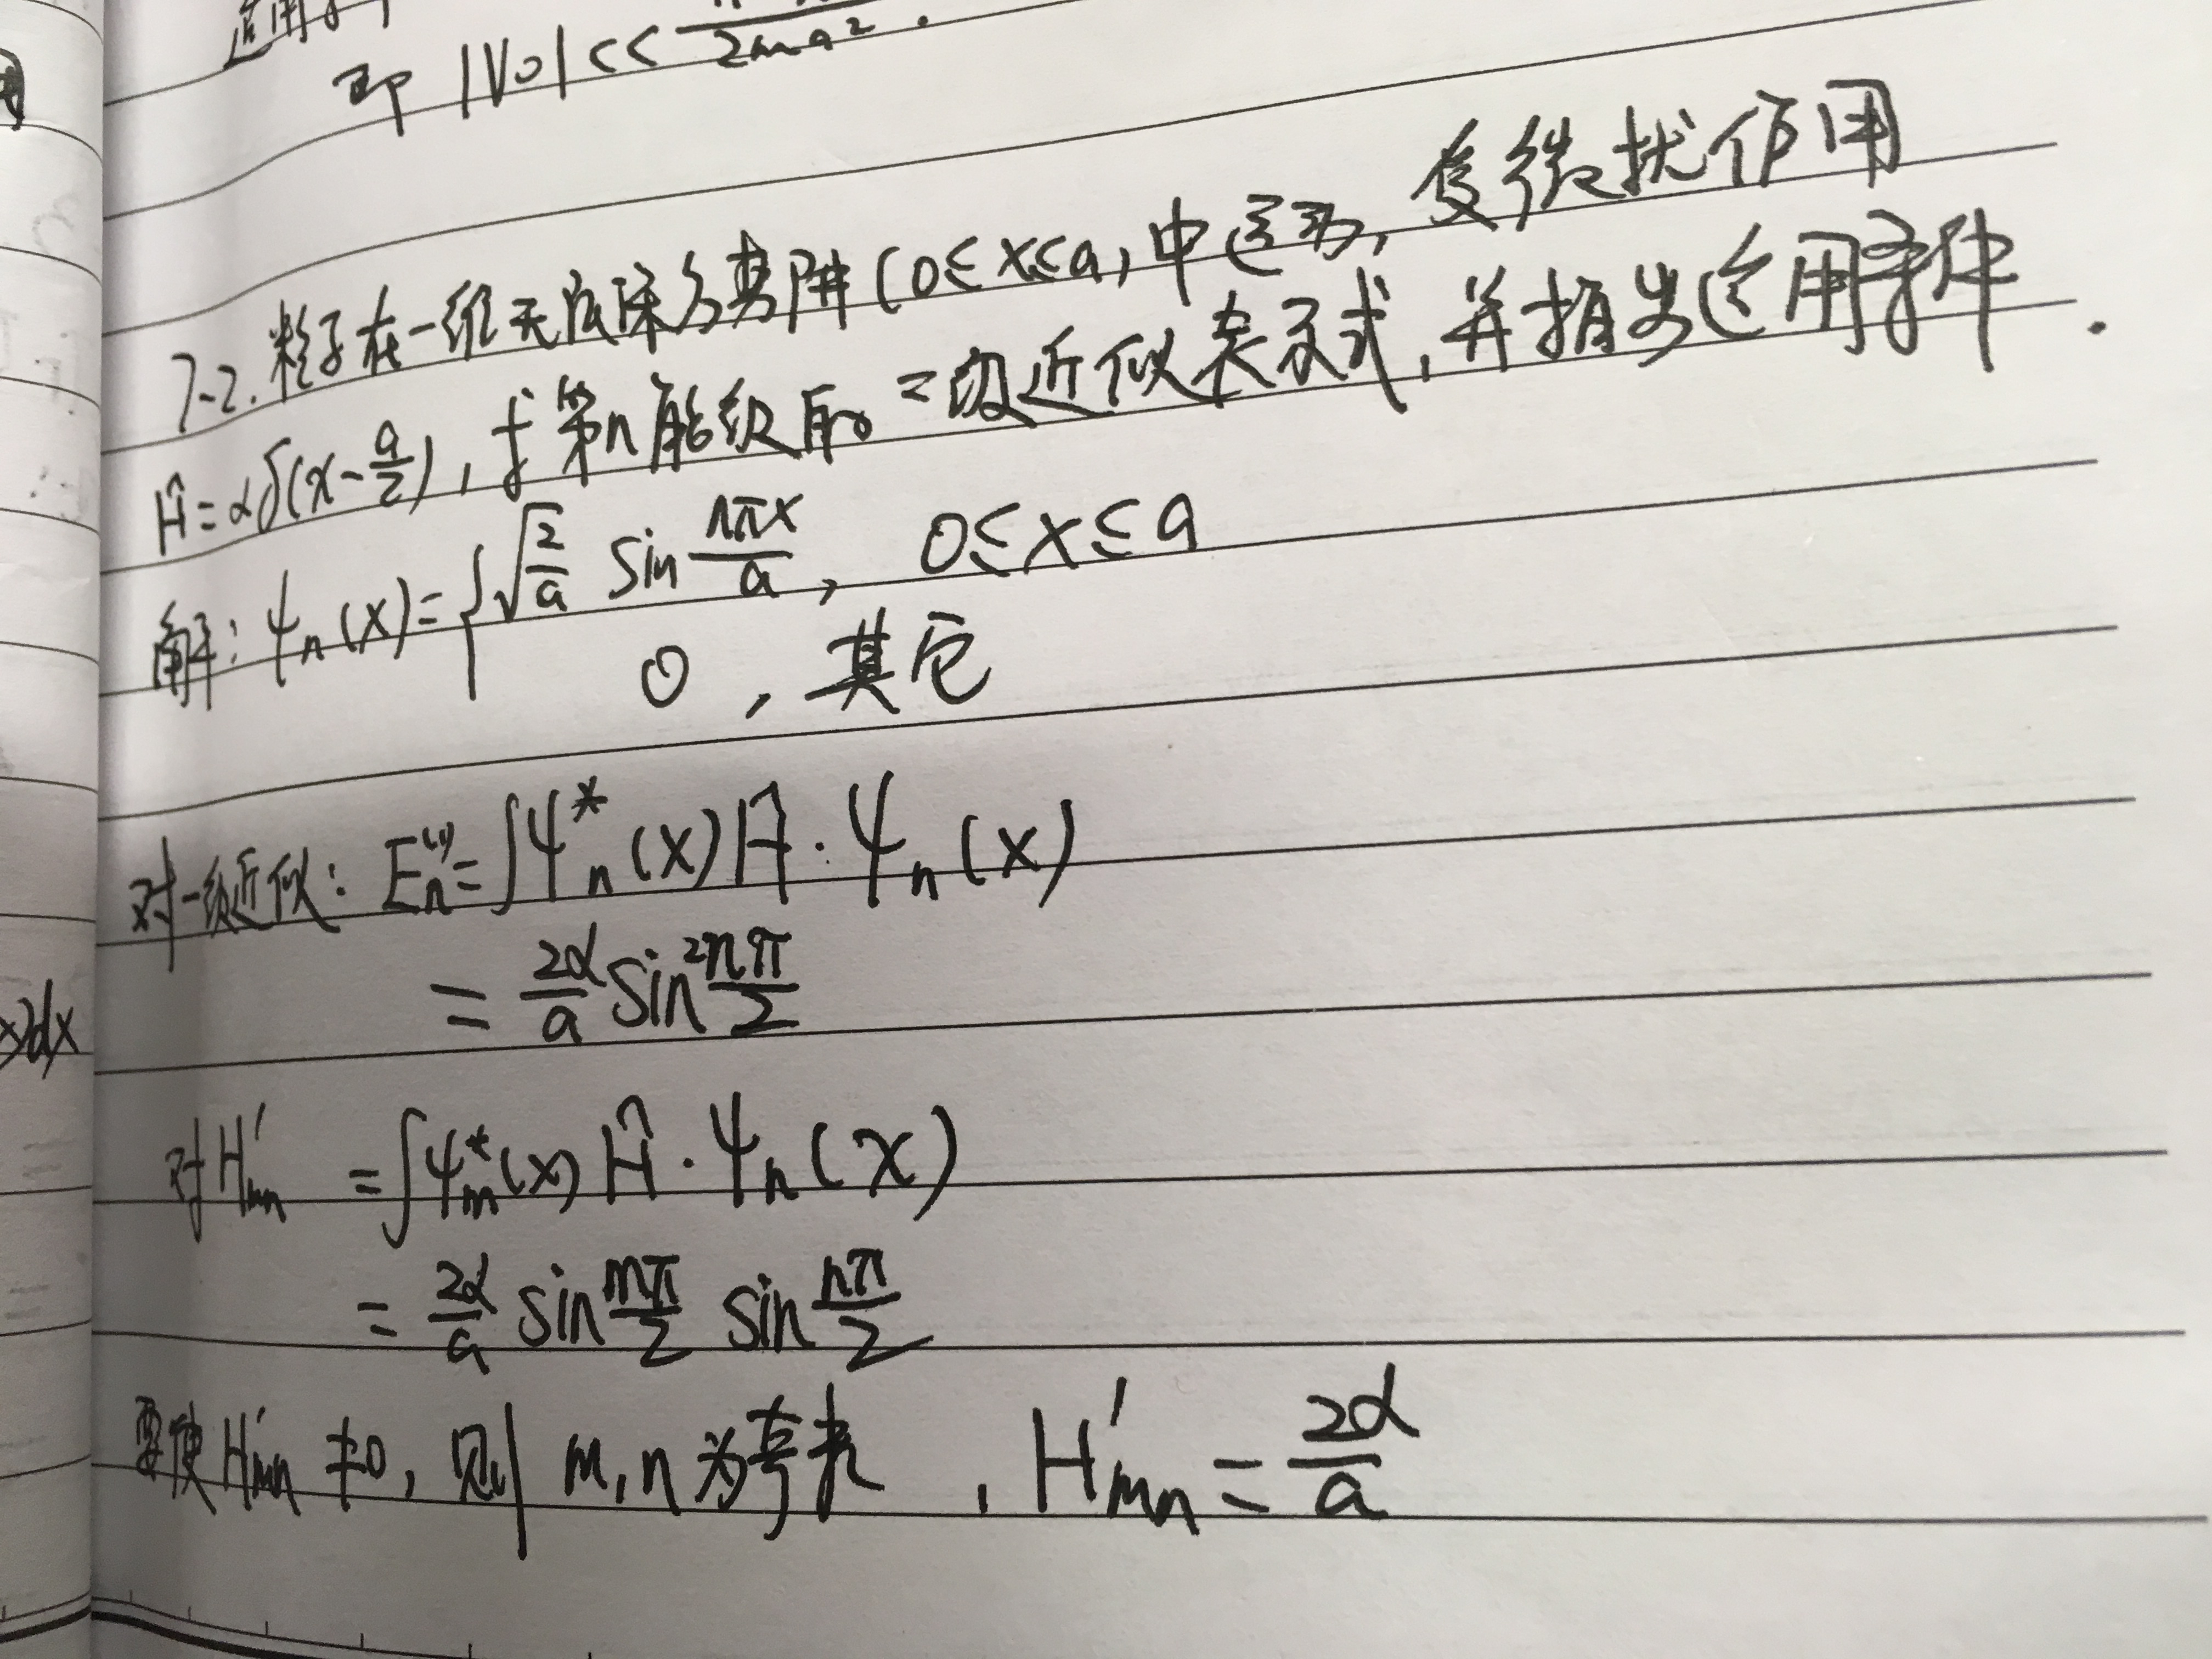 适用于
即 |V₀| << ―/2ma² .
7-2. 粒子在一维无底深方势阱 (0≤x≤a) 中运动, 受微扰作用
Ĥ = αδ(x - a/2), 求第n能级的二级近似表示式, 并指出适用条件.
解: ψₙ(x) = { √(2/a) sin nπx/a, 0≤x≤a
0 , 其它
对一级近似: Eₙ⁽¹⁾ = ∫ψₙ*(x) Ĥ · ψₙ(x)
= 2α/a sin² nπ/2
对 H'ₘₙ = ∫ψₘ*(x) Ĥ · ψₙ(x)
= 2α/a sin mπ/2 sin nπ/2
要使 H'ₘₙ ≠0, 则 m, n 为奇数 , H'ₘₙ = 2α/a
x)dx